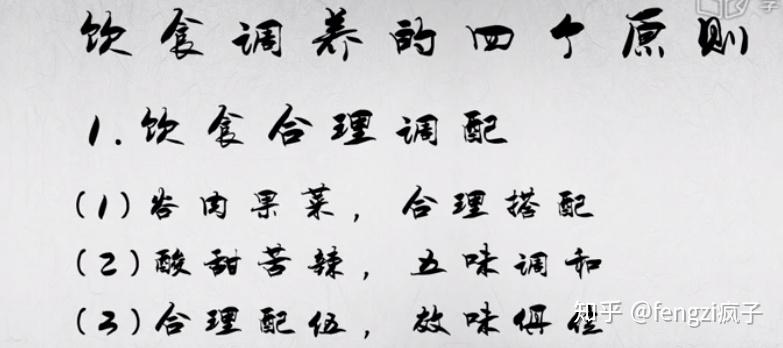 饮食调养的四个原则
1.饮食合理调配
(1)谷肉果菜，合理搭配
(2)酸甜苦辣，五味调和
(3)合理配伍，效味俱佳
知乎 @fengzi疯子